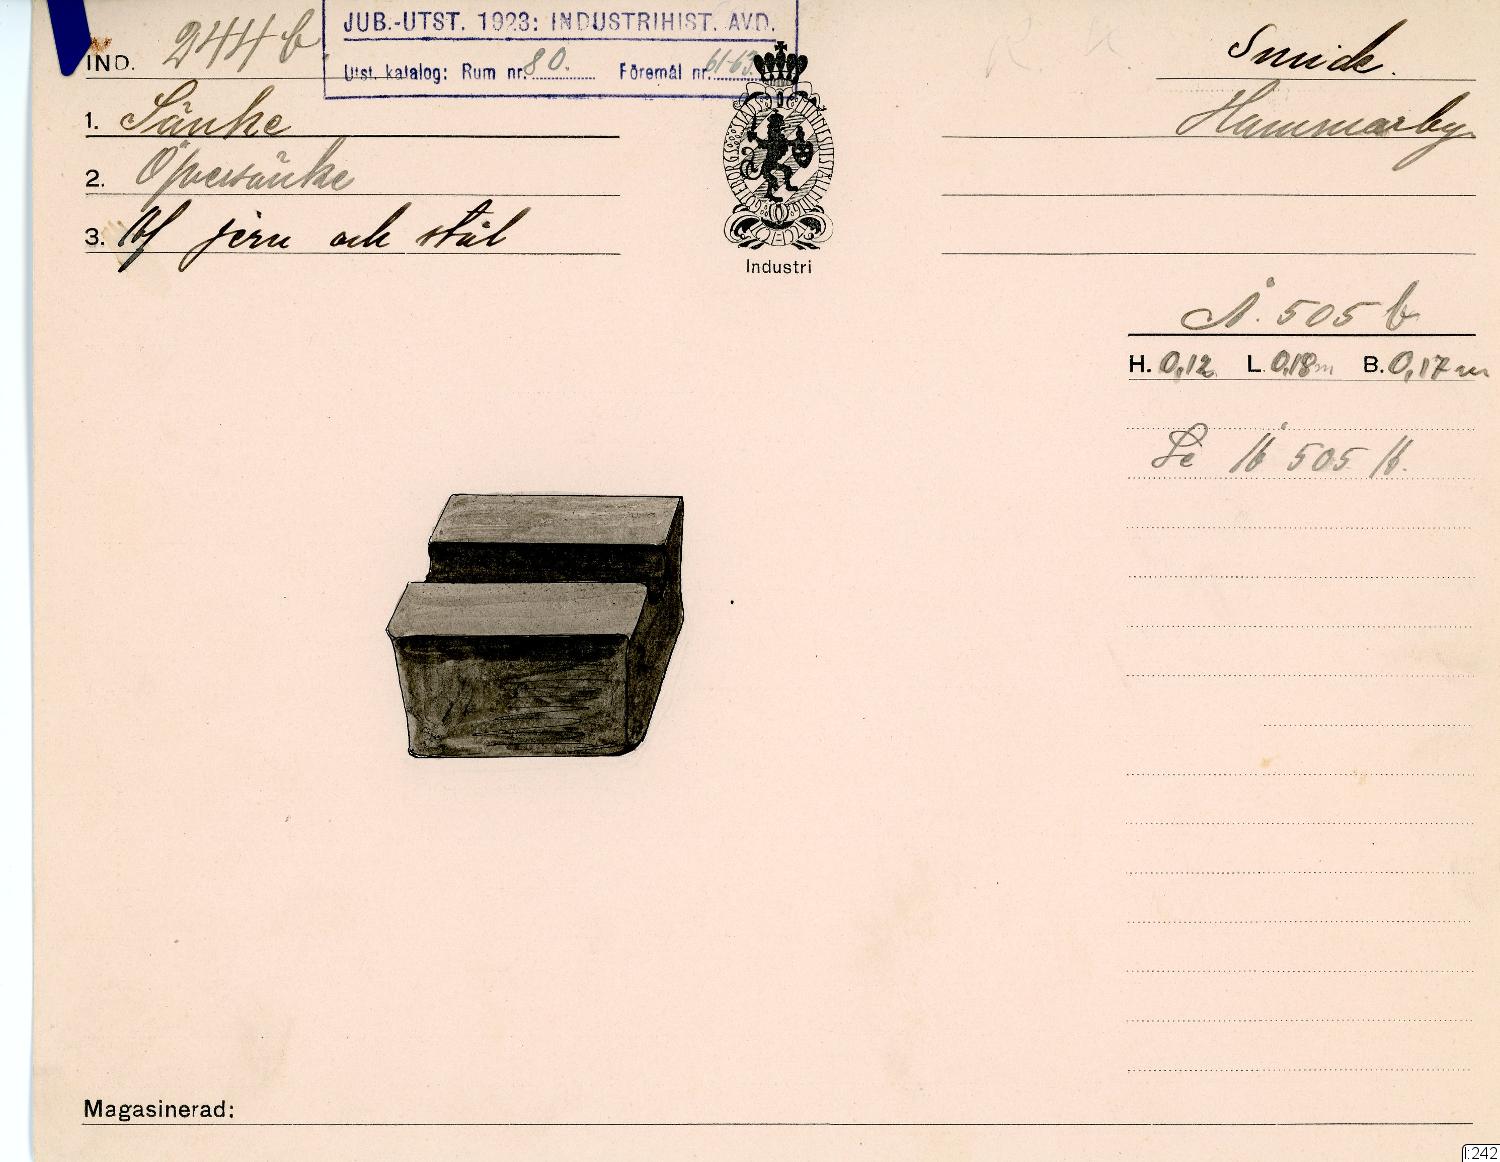 JUB.-UTST. 1923: INDUSTRIHIST. AVD.
Utst. katalog: Rum nr. 80. Föremål nr. 61-63
IND. 244 b
1. Sänke
2. Öfversänke
3. Af jern och stål
Industri
Smide.
Hammarby
Å. 505 b
H. 0,12 L. 0,18 m B. 0,17 m
Se Å 505 A.
Magasinerad:
I:242